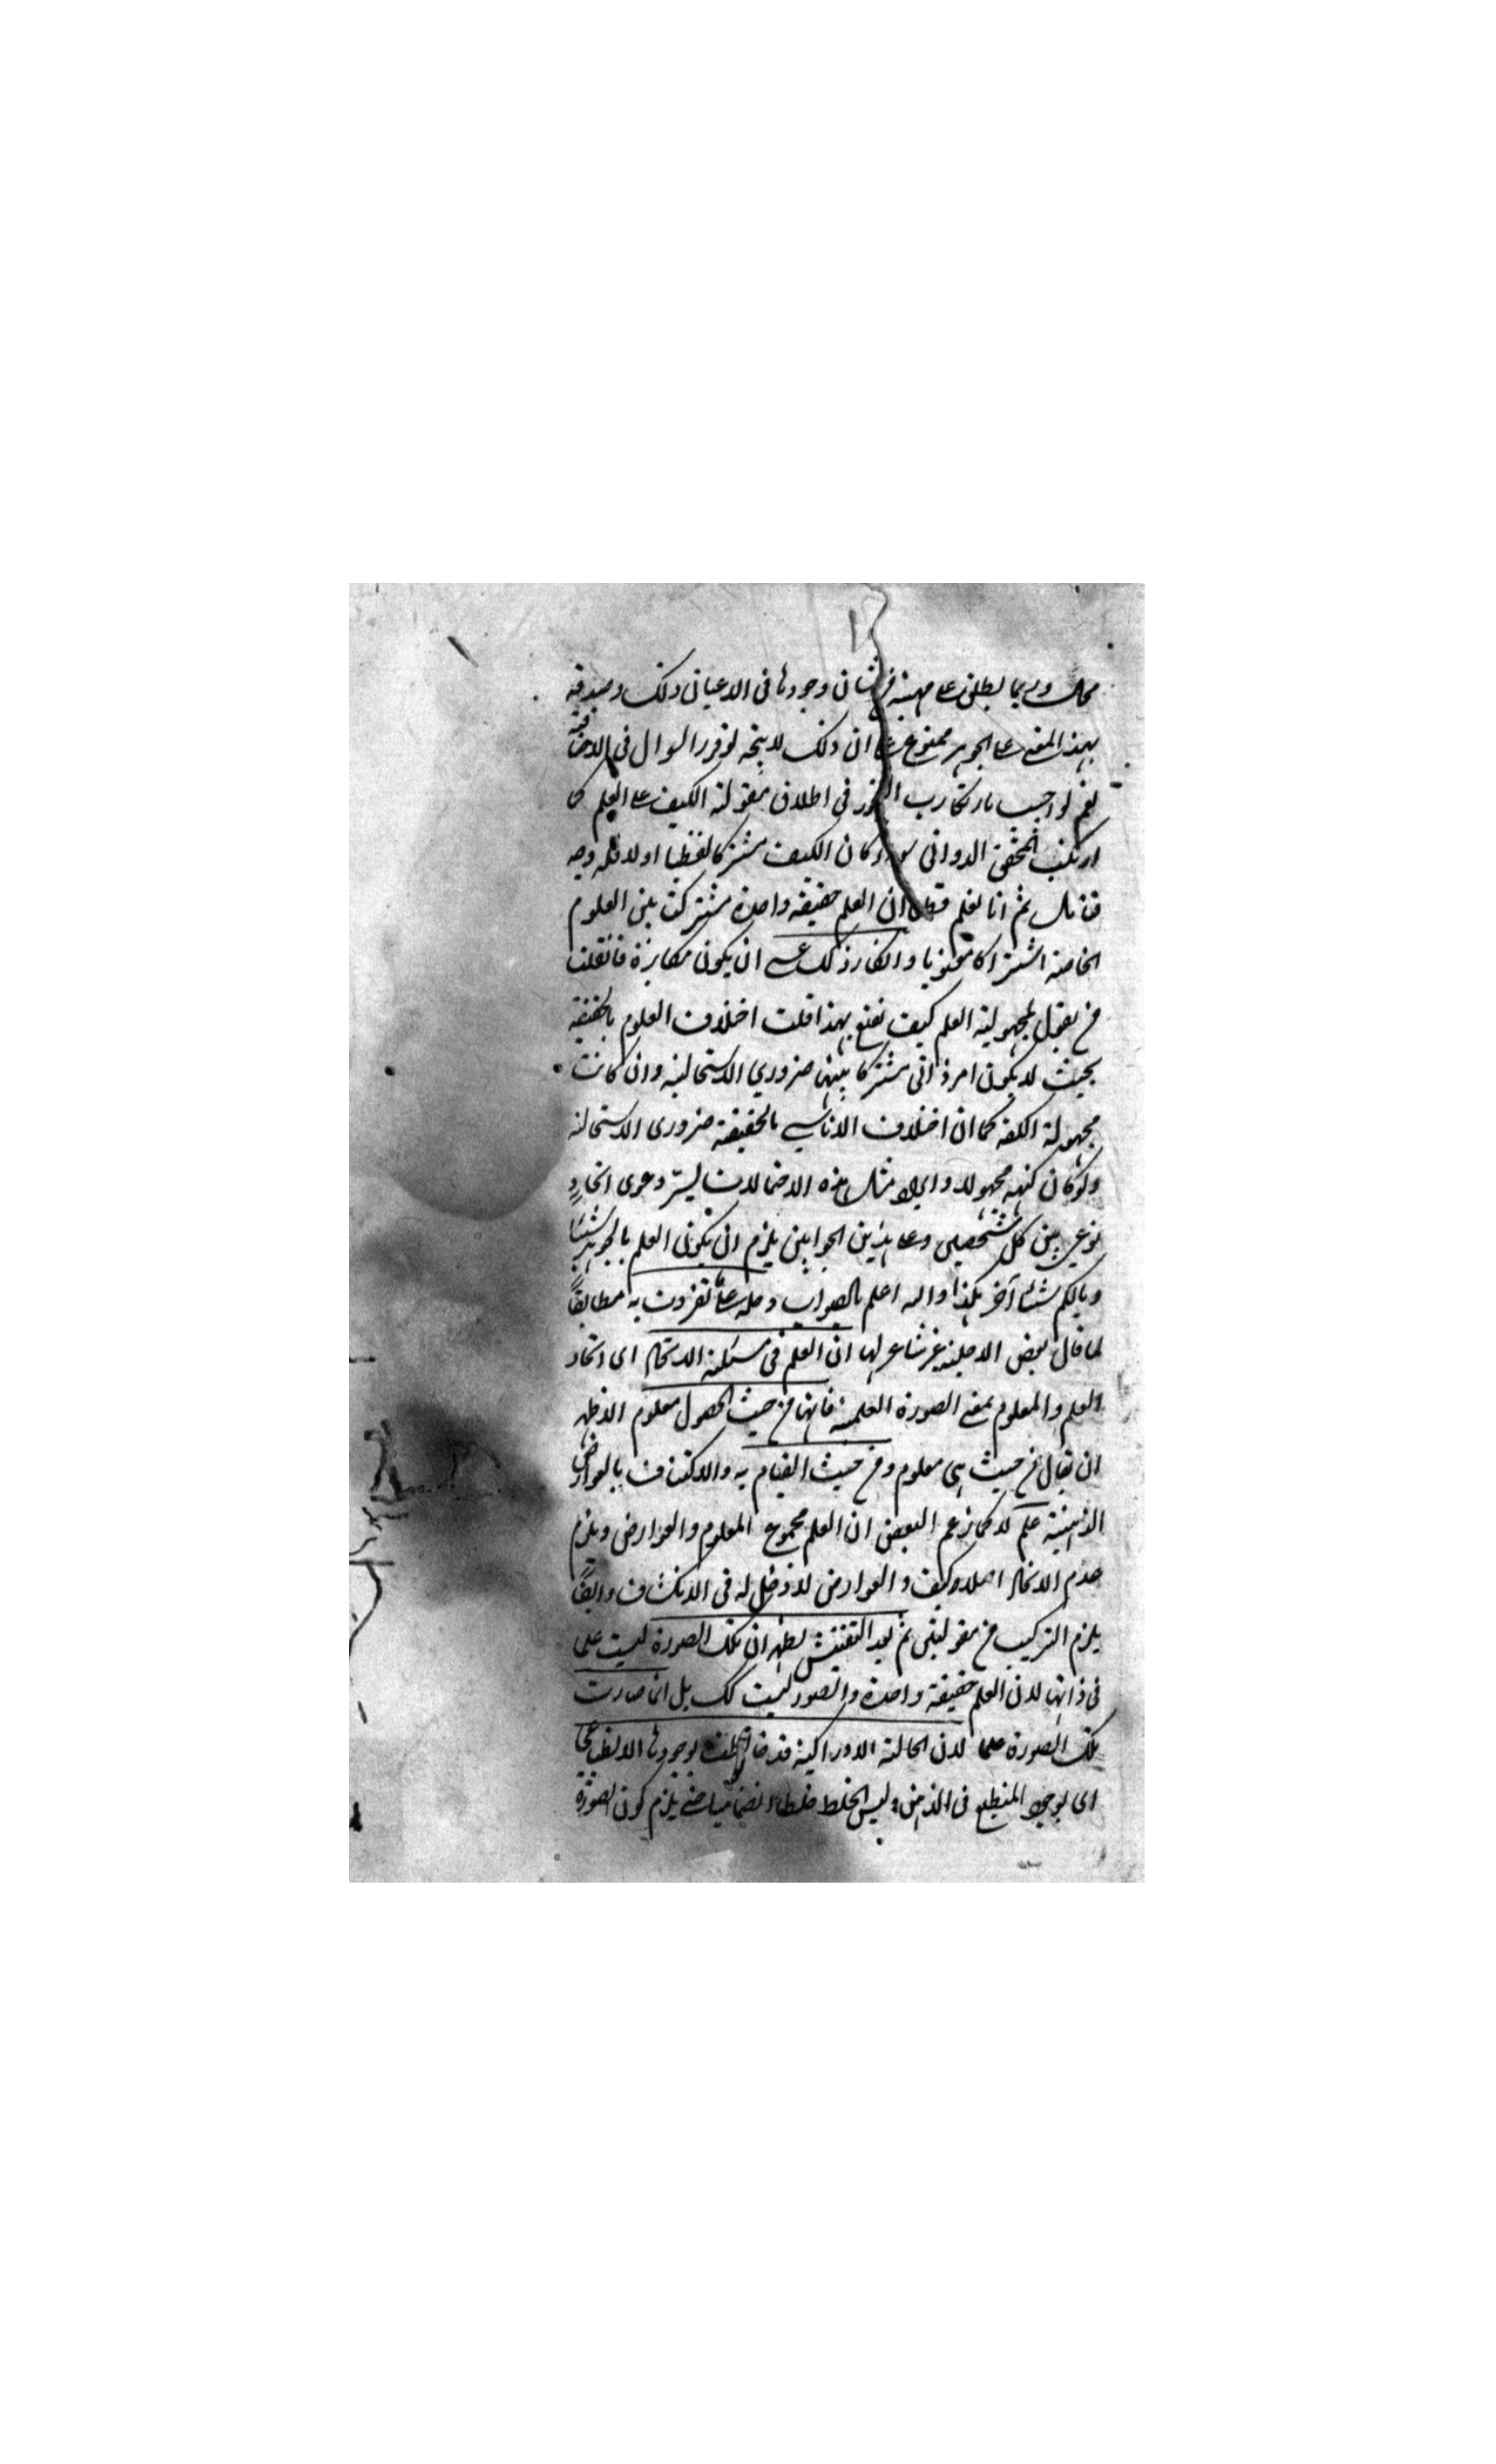 محال وربما يطلق على مهية من شان وجودها فى الاعيان ذلك وصدقه
بهذا المعنى على الجوهر ممنوع على ان ذلك لا يتجه لو قرر السوال فى الاضافية
نعم لو اجيب بارتكاب فى اطلاق مقولة الكيف على العلم كما
ارتكب المحقق الدوانى سواء كان الكيف مشتركا لفظيا اولا فله وجه
فتامل ثم انا نعلم قطعا ان العلم حقيقة واحدة مشتركة بين العلوم
الخاصة اشتراكا معنويا وانكار ذلك عسى ان يكون مكابرة فان قلت
من يقول بمجهولية العلم كيف يقنع بهذا قلت اختلاف العلوم بالحقيقة
بحيث لا يكون امر ذاتى مشتركا بينها ضروري الاستحالة وان كانت
مجهولة الكنه كما ان اختلاف الاناسي بالحقيقة ضرورى الاستحالة
ولو كان كنهه مجهولا و امثال هذه الاحتمالات ليس دعوى اتحاد
نوعي بين كل شخصين وعلى هذين الجوابين يلزم ان يكون العلم بالجوهر شيئا
وبالكم شيئا آخر هكذا والله اعلم بالصواب وحله على ما تفردت به مطابقا
لما قال بعض الاجلة غير شاعر لها ان العلم فى مسئلة الاتحاد اى اتحاد
العلم والمعلوم بمعنى الصورة العلمية فانها من حيث الحصول معلوم الاظهر
ان يقال من حيث هى معلوم ومن حيث القيام به والاكتناف بالعوارض
الذهنية علم لا كما زعم البعض ان العلم مجموع المعلوم والعوارض ويلزم
عدم الاتحاد اصلا وكيف والعوارض لا دخل له فى الانكشاف وايضا
يلزم التركيب من مقولتين ثم بعد التفتيش يظهر ان تلك الصورة ليست علم
فى ذاتها لان العلم حقيقة واحدة والصور ليست كك بل انما صارت
تلك الصورة علما لان الحالة الادراكية قد خالطت بوجودها الانطباعى
اى بوجود المنطبع فى الذهن وليس الخلط خلطا انضماميا حتى يلزم كون الصورة